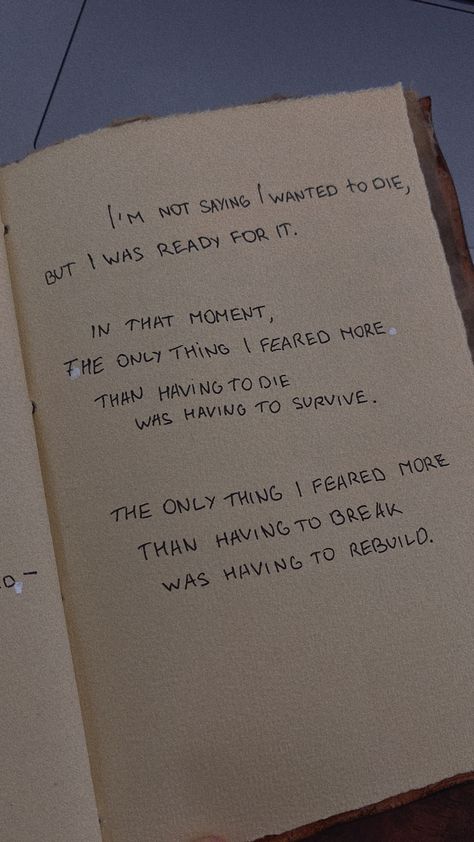 I'M NOT SAYING I WANTED TO DIE,
BUT I WAS READY FOR IT.
IN THAT MOMENT,
THE ONLY THING I FEARED MORE
THAN HAVING TO DIE
WAS HAVING TO SURVIVE.
THE ONLY THING I FEARED MORE
THAN HAVING TO BREAK
WAS HAVING TO REBUILD.